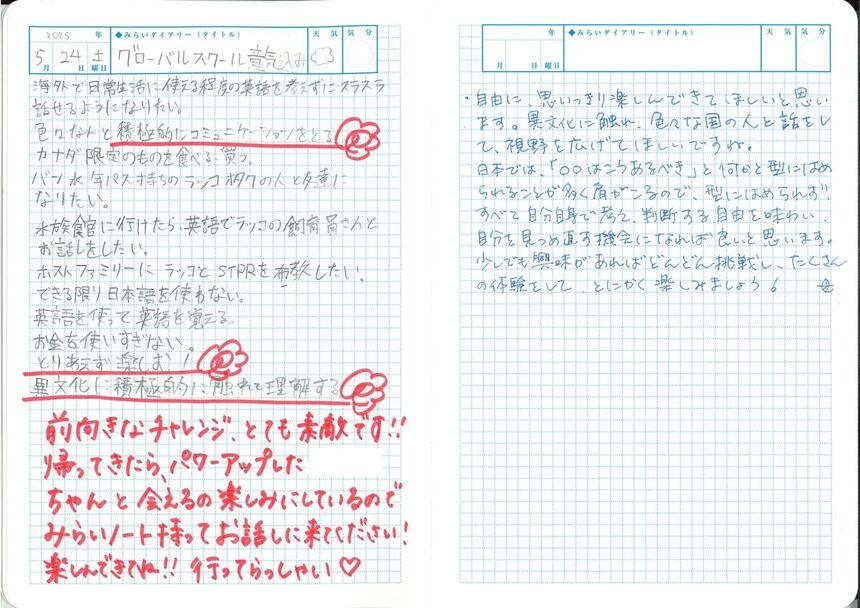 2025 年
◆みらいダイアリー(タイトル)
天 気
気 分
5月 24日 土曜日
グローバルスクール意気込み
海外で日常生活に使える程度の英語を考えずにスラスラ
話せるようになりたい。
色々な人と積極的にコミュニケーションをとる
カナダ限定のものを食べる・買う。
バン水年パス持ちのラッコオタクの人と友達に
なりたい。
水族館に行けたら、英語でラッコの飼育員さんと
お話しをしたい。
ホストファミリーにラッコとSTPRを布教したい。
できる限り日本語を使わない。
英語を使って英語を覚える。
お金を使いすぎない。
とりあえず楽しむ!
異文化に積極的に触れて理解する
前向きなチャレンジ、とても素敵です!!
帰ってきたら、パワーアップした
ちゃんと会えるの楽しみにしているので
みらいノート持ってお話しに来てください!
楽しんできてね!! 行ってらっしゃい♡
年
◆みらいダイアリー(タイトル)
天 気
気 分
月 日 曜日
・自由に、思いっきり楽しんできてほしいと思い
ます。異文化に触れ、色々な国の人と話をし
て、視野を広げてほしいですね。
日本では、「〇〇はこうあるべき」と何かと型にはめ
られることが多く肩がこるので、型にはめられず、
すべて自分自身で考え、判断する自由を味わい、
自分を見つめ直す機会になれば良いと思います。
少しでも興味があればどんどん挑戦し、たくさん
の体験をして、とにかく楽しみましょう!